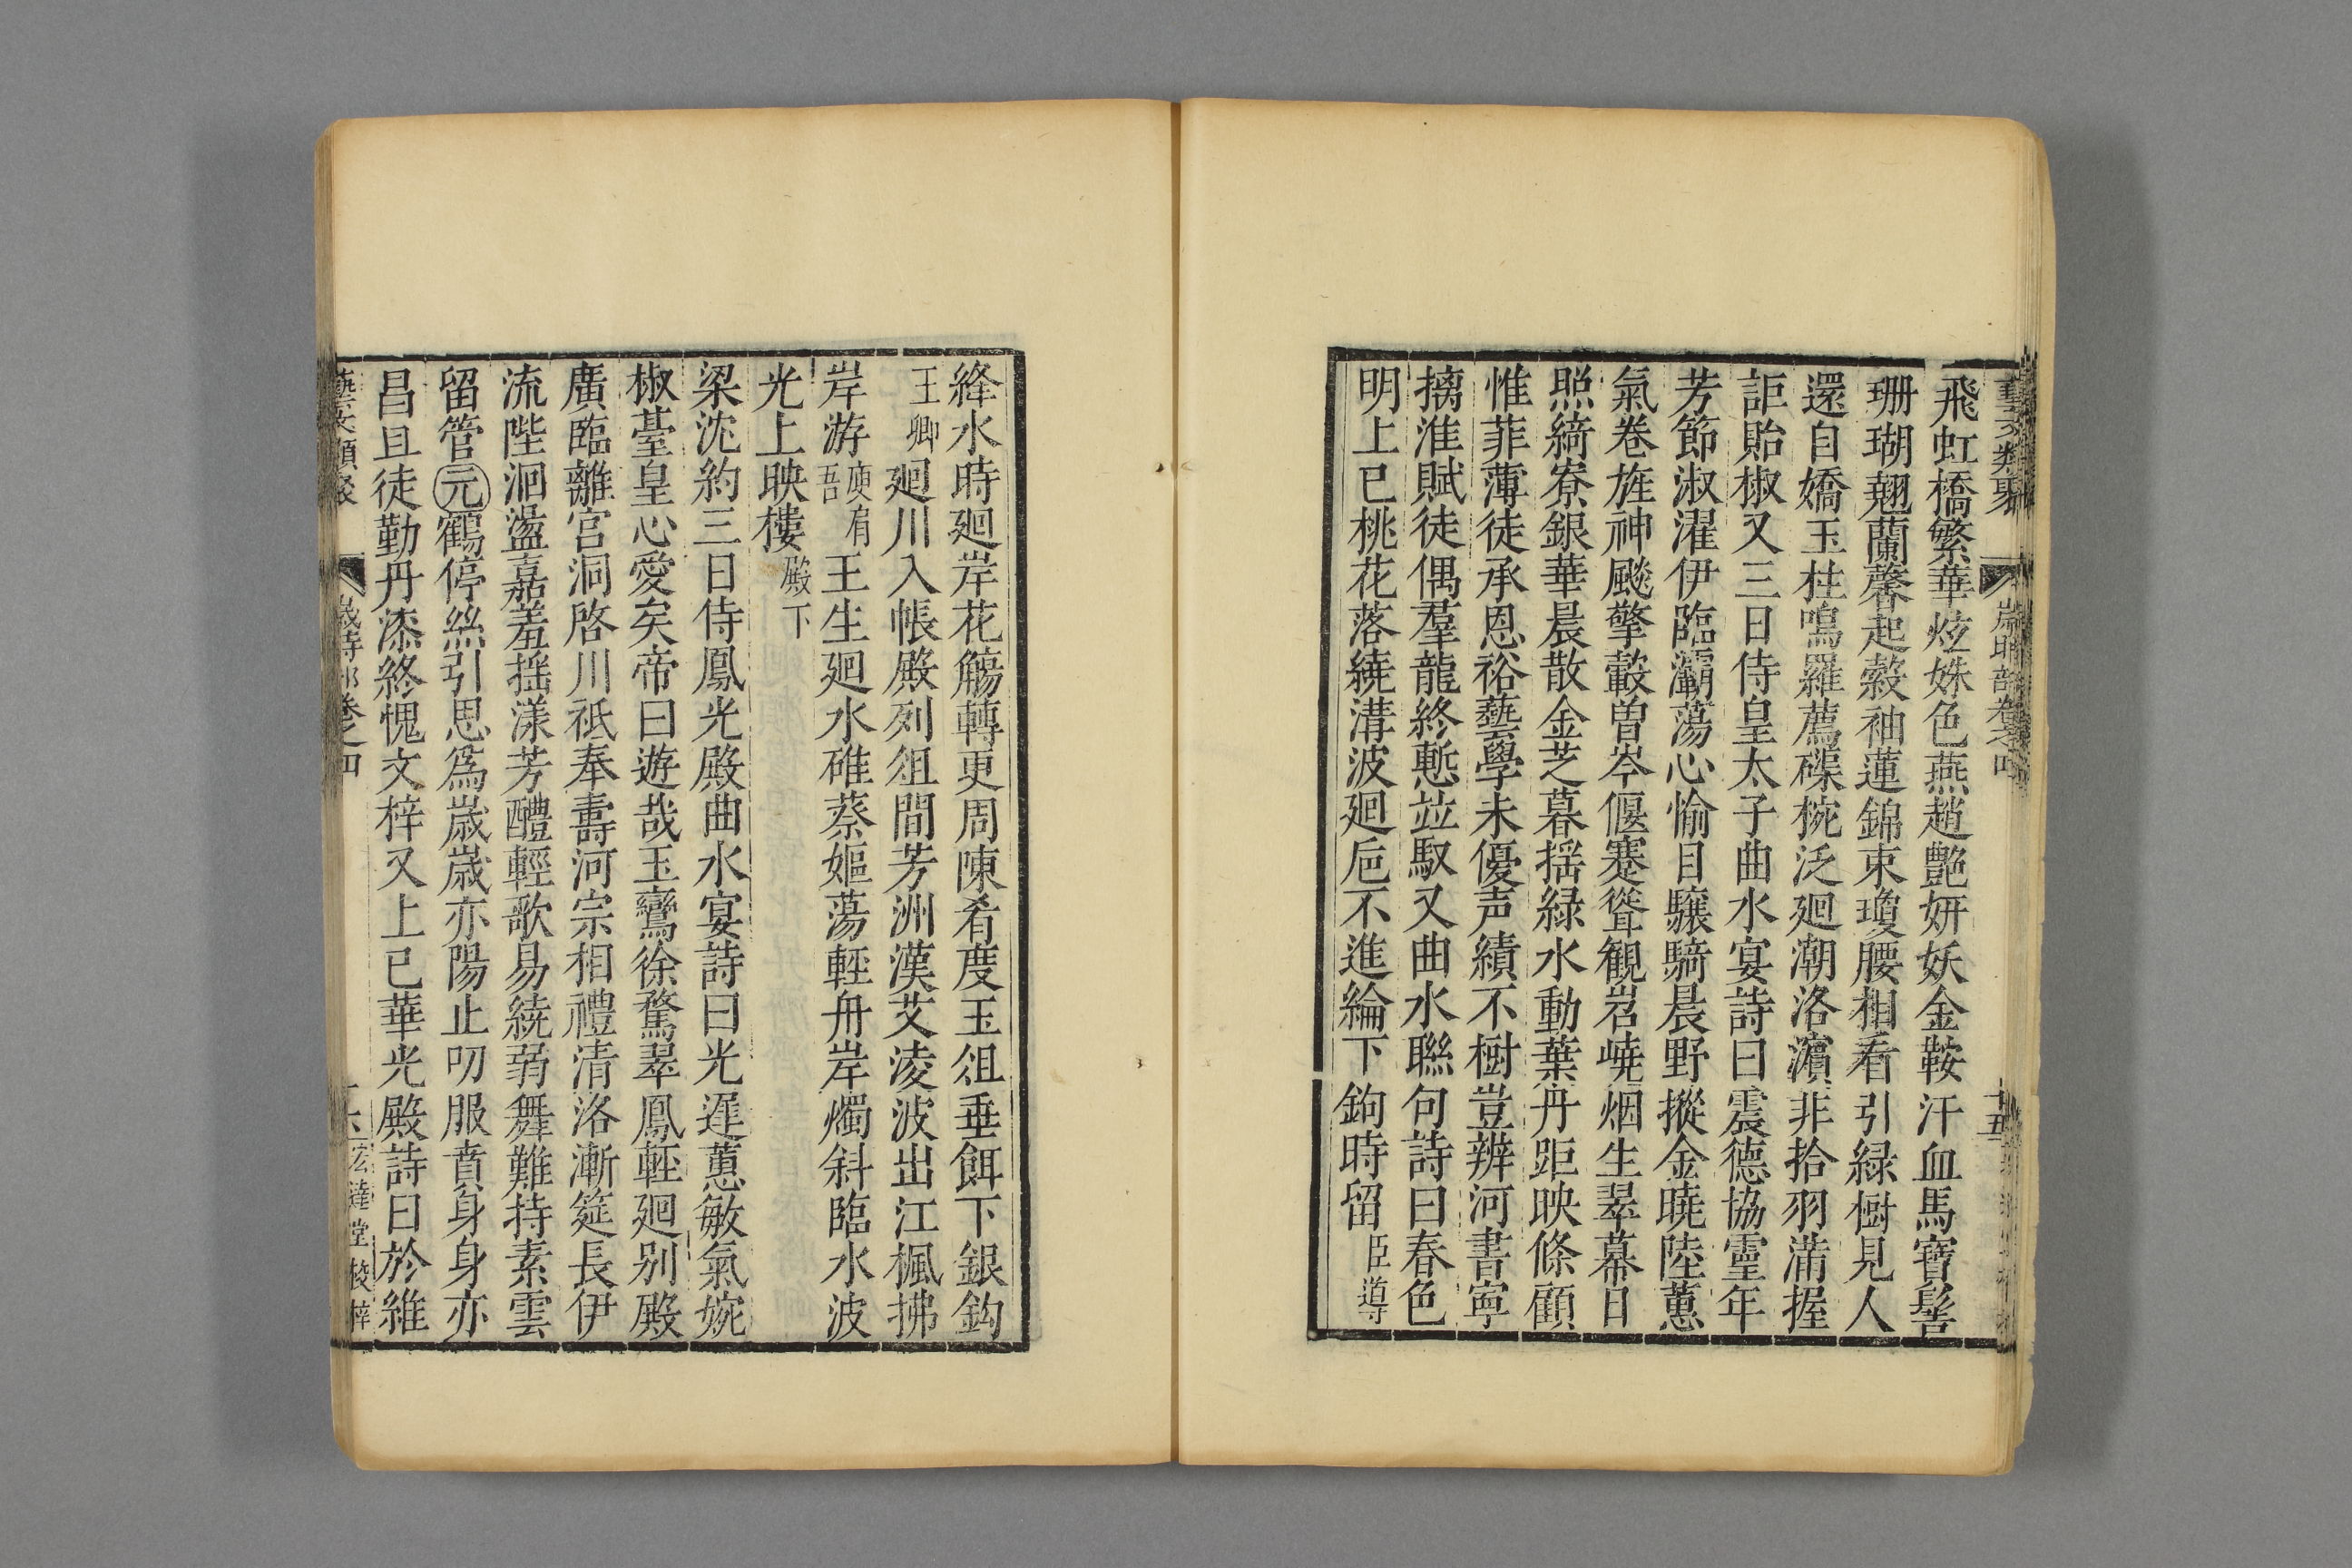 藝文類聚 歲時部卷之四 十五
飛虹橋繁華炫姝色燕趙艷妍妖金鞍汗血馬寶髻
珊瑚翹蘭馨起縠袖蓮錦束瓊腰相看引緑樹見人
還自嬌玉柱鳴羅薦磲椀泛廻潮洛濵非拾羽滿握
詎貽椒又三日侍皇太子曲水宴詩曰震德協靈年
芳節淑濯伊臨灞蕩心愉目驤騎晨野摐金曉陸蕙
氣卷旌神颷擎轂曽岑偃蹇聳觀岧嶢烟生翠幕日
照綺寮銀華晨散金芝暮揺緑水動葉丹距映條顧
惟菲薄徒承恩裕藝學未優声績不樹豈辨河書寧
摛淮賦徒偶羣龍終慙竝馭又曲水聮句詩曰春色
明上巳桃花落繞溝波廻巵不進綸下鉤時留臣導
絳水時廻岸花觴轉更周陳肴度玉俎垂餌下銀鈎
王卿廻川入帳殿列俎間芳洲漢艾凌波出江楓拂
岸游庾肩吾王生廻水碓蔡嫗蕩輕舟岸燭斜臨水波
光上映樓殿下
梁沈約三日侍鳳光殿曲水宴詩曰光遲蕙敏氣婉
椒臺皇心愛矣帝曰遊哉玉鸞徐騖翠鳳輕廻别殿
廣臨離宫洞啓川祇奉壽河宗相禮清洛漸筵長伊
流陛洄盪嘉羞揺漾芳醴輕歌易繞弱舞難持素雲
留管元鶴停絲引思為嵗嵗亦陽止叨服賁身身亦
昌且徒勤丹漆終愧文梓又上巳華光殿詩曰於維
藝文類聚 歲時部卷之四 十六 宏達堂校梓